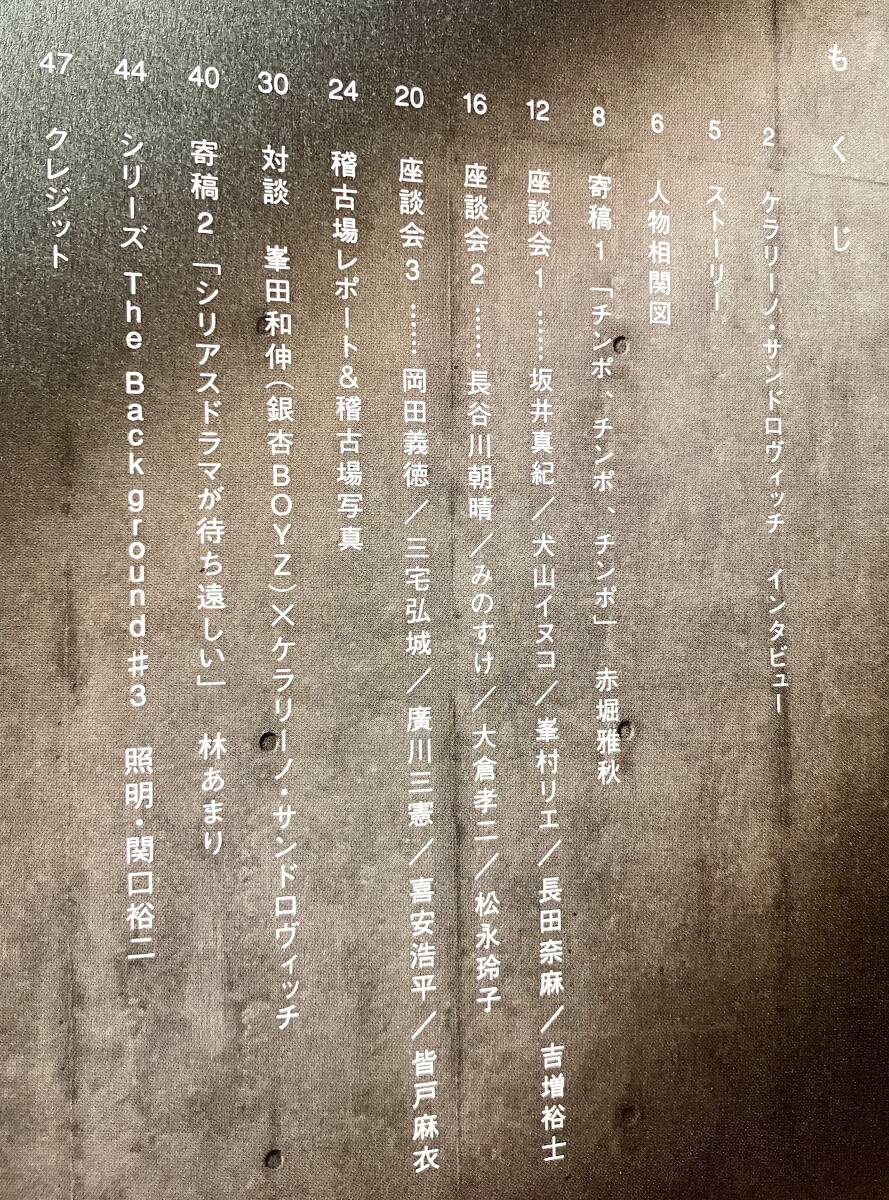 もくじ
2 ケラリーノ・サンドロヴィッチ インタビュー
5 ストーリー
6 人物相関図
8 寄稿1「チンポ、チンポ、チンポ」 赤堀雅秋
12 座談会1……坂井真紀／犬山イヌコ／峯村リエ／長田奈麻／吉増裕士
16 座談会2……長谷川朝晴／みのすけ／大倉孝二／松永玲子
20 座談会3……岡田義徳／三宅弘城／廣川三憲／喜安浩平／皆戸麻衣
24 稽古場レポート＆稽古場写真
30 対談 峯田和伸（銀杏BOYZ）×ケラリーノ・サンドロヴィッチ
40 寄稿2「シリアスドラマが待ち遠しい」 林あまり
44 シリーズ The Background♯3 照明・関口裕二
47 クレジット